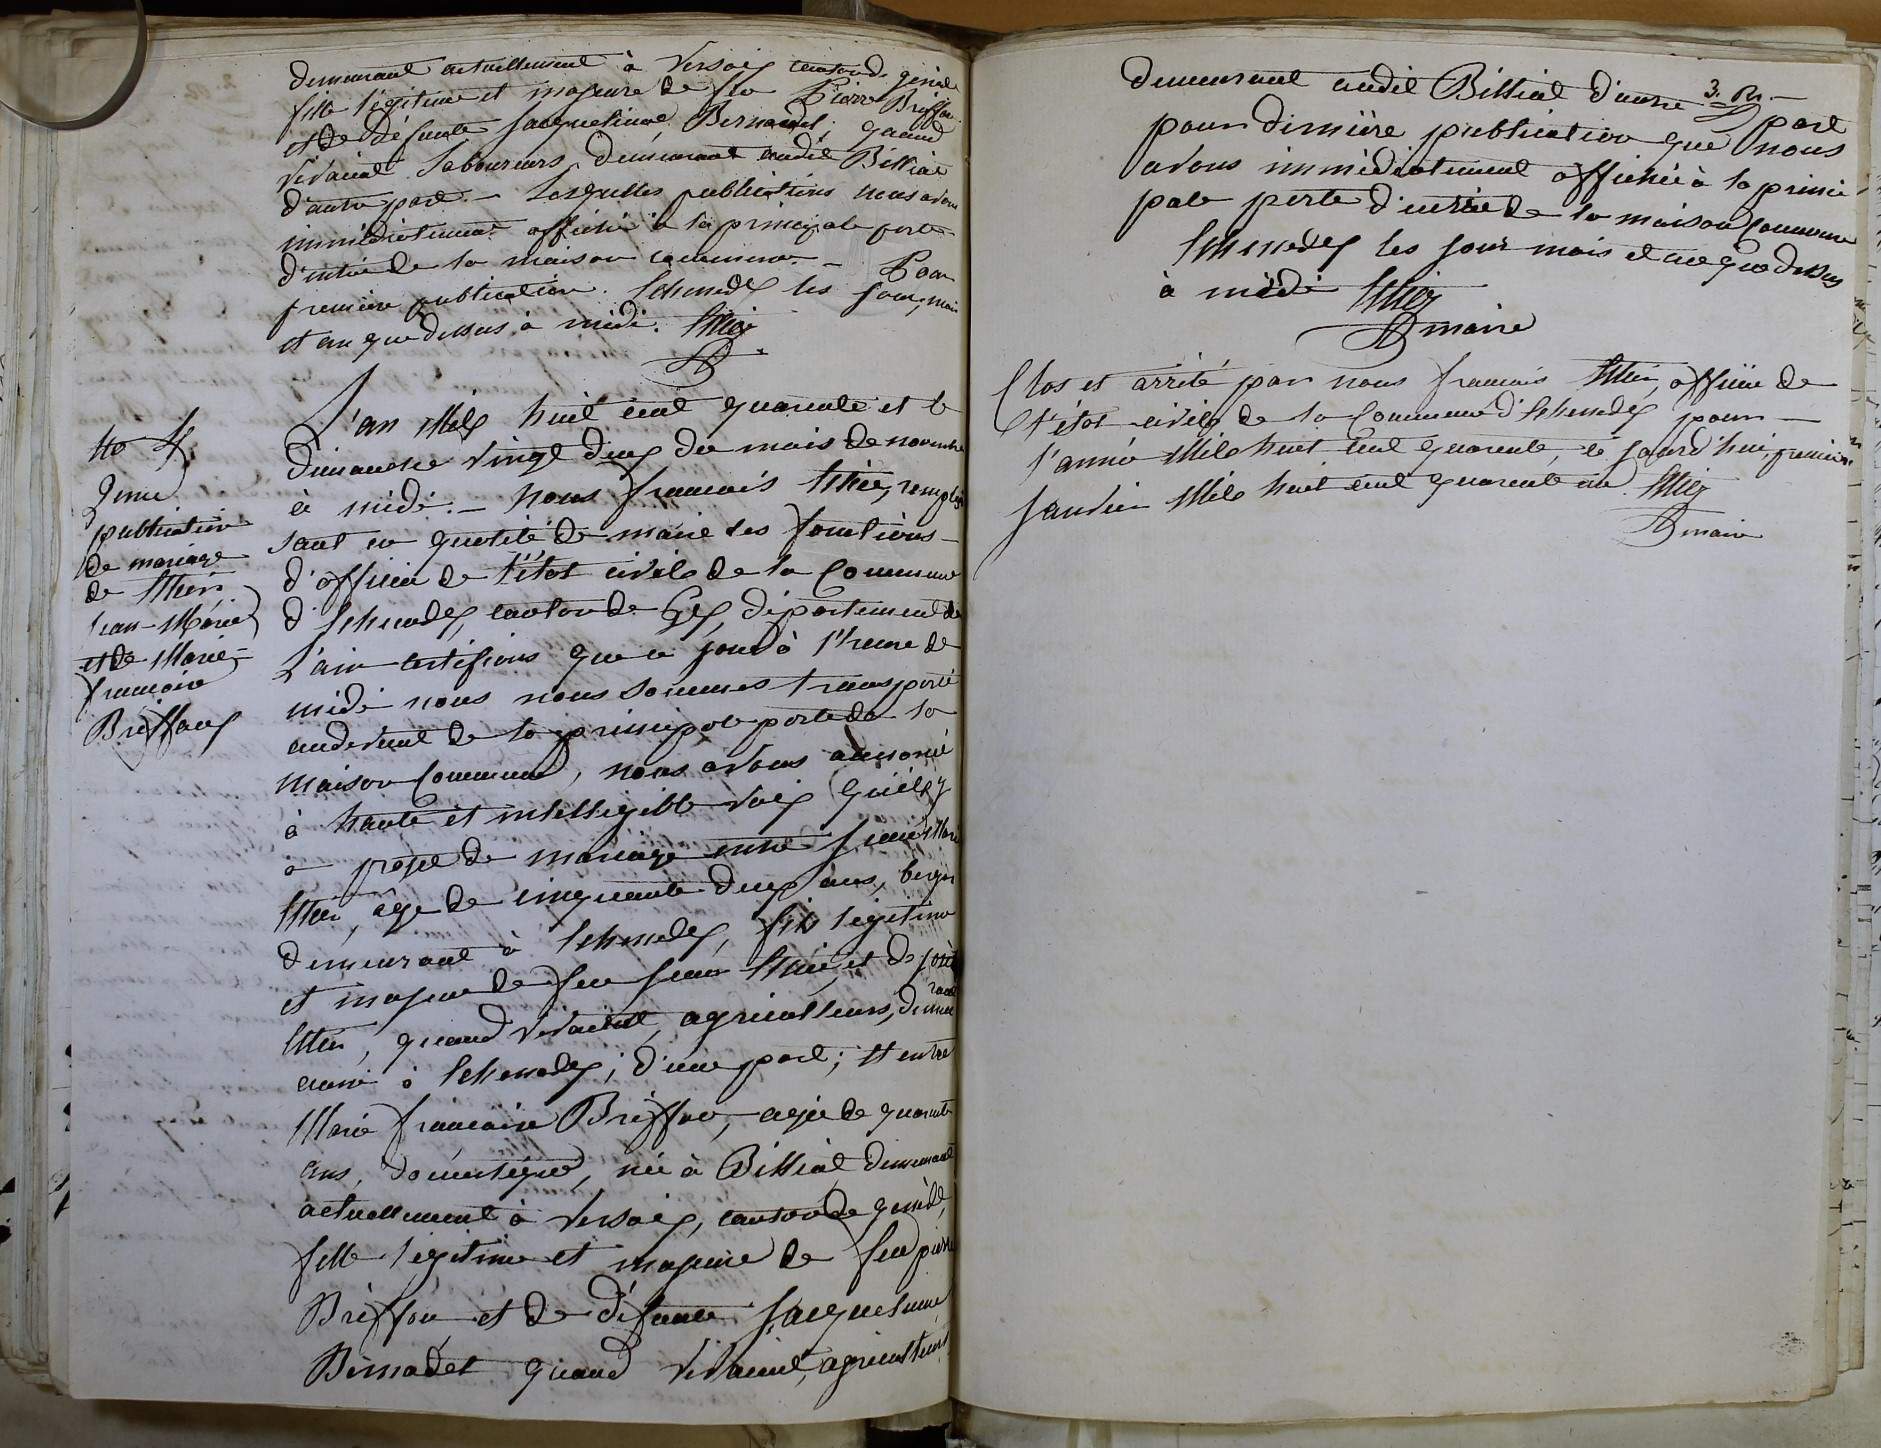 demeurant actuellement à Versoix canton de genève
fille légitime et majeure de feu Pierre Briffau
et de défunte Jacqueline Bernardet, quand
vivaient laboureurs, demeurant audit Billiat
d'autre part. – Lesquelles publications nous avons
immédiatement affiché à la principale porte
d'entrée de la maison commune. – Pour
première publication. Echenedex les jour, mois
et an que dessus à midi.
No 4
2eme
publication
de mariage
de
Jean-Marie
et de Marie-
françoise
Briffaux
L'an Mil huit cent quarante et le
Dimanche vingt deux du mois de novembre
à midi. – Nous françois remplis
sant en qualité de maire les fonctions
d'officier de l'état civil de la Commune
d' Echenedex, canton de Gex, département de
L'ain certifions que ce jourd'à l'heure de
midi nous nous sommes transporté
audevant de la principale porte de la
maison Commune, nous avons annoncé
à haute et intelligible voix qu'il y
a projet de mariage entre Jean Marie
âge de cinquante deux ans, berger
demeurant à Echenedex, fils légitime
et majeur de feu Jean et de
quand vivaient, agriculteurs, demeu
rant
aussi à Echenedex; d'une part; Et entre
Marie françoise Briffau, agée de quarante
ans, domestique, née à Billiat demeurant
actuellement à Versoix, canton de genève,
fille légitime et majeure de feu pierre
Briffau et de défunte Jacqueline
Bernadet quand vivaient, agriculteurs
3. R.
demeurant audit Billiat d'autre part
pour dernière publication que nous
avons immédiatement affichée à la princi
pale porte d'entrée de la maison Commune
Echenedex les jour mois et an que dessus
à midi
maire
Clos et arrêté par nous francois officier de
l'état-civil de la Commune d'Echenedex pour –
l'année Mil huit cent quarante, ce jourd'hui, premier
janvier Mil huit cent quarante un
maire